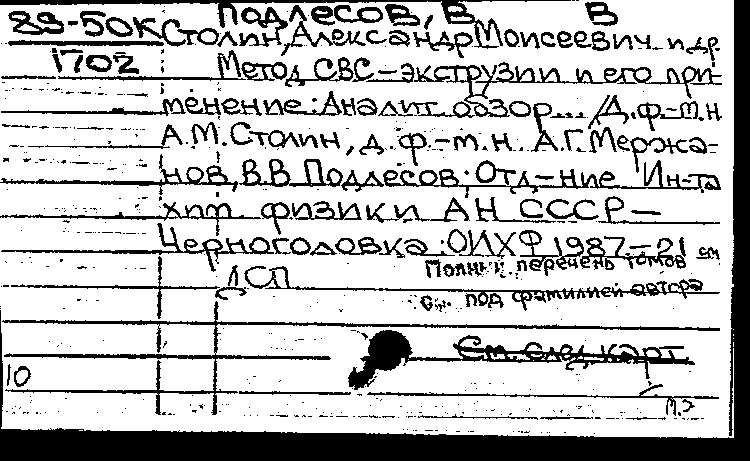 Подлесов, В В
89-50К Столин, Александр Моисеевич и др.
1702 Метод СВС-экструзии и его при-
менение: Аналит. обзор... /Д.ф.-м.н
А.М.Столин, д.ф.-м.н. А.Г.Мержа-
нов, В.В.Подлесов; Отд-ние Ин-та
хим. физики АН СССР-
Черноголовка: ОИХФ 1987-21 см
ДСП Полный перечень томов
См. под фамилией автора
См. след. карт.
10